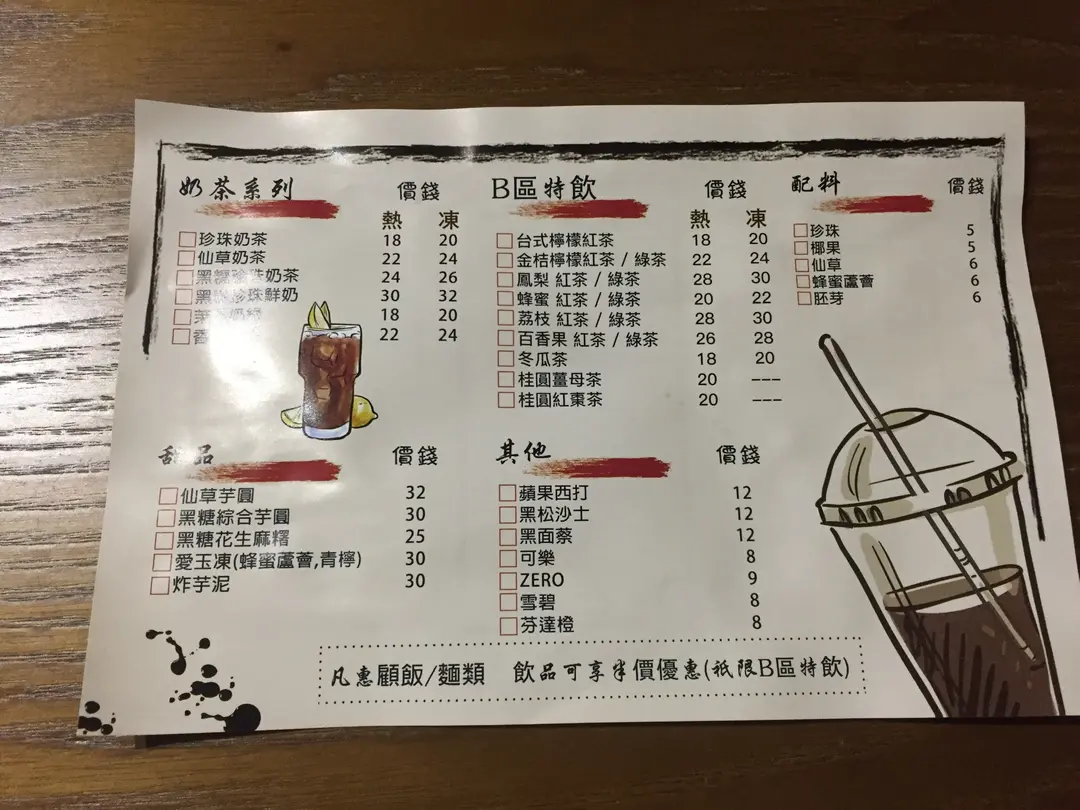 奶茶系列 價錢
熱 凍
珍珠奶茶 18 20
仙草奶茶 22 24
黑糖珍珠奶茶 24 26
黑糖珍珠鮮奶 30 32
奶綠 18 20
22 24
B區特飲 價錢
熱 凍
台式檸檬紅茶 18 20
金桔檸檬紅茶 / 綠茶 22 24
鳳梨 紅茶 / 綠茶 28 30
蜂蜜 紅茶 / 綠茶 20 22
荔枝 紅茶 / 綠茶 28 30
百香果 紅茶 / 綠茶 26 28
冬瓜茶 18 20
桂圓薑母茶 20 ---
桂圓紅棗茶 20 ---
配料 價錢
珍珠 5
椰果 5
仙草 6
蜂蜜蘆薈 6
胚芽 6
甜品 價錢
仙草芋圓 32
黑糖綜合芋圓 30
黑糖花生麻糬 25
愛玉凍(蜂蜜蘆薈,青檸) 30
炸芋泥 30
其他 價錢
蘋果西打 12
黑松沙士 12
黑面蔡 12
可樂 8
ZERO 9
雪碧 8
芬達橙 8
凡惠顧飯/麵類 飲品可享半價優惠(祇限B區特飲)